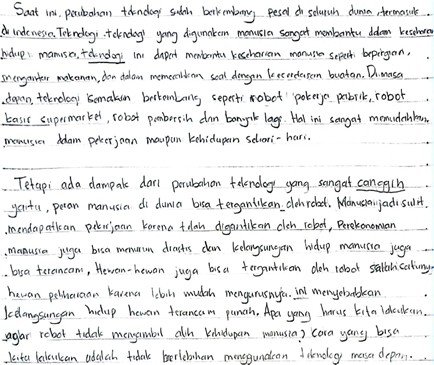 Saat ini, perubahan teknologi sudah berkembang pesat di seluruh dunia termasuk
di Indonesia. Teknologi-teknologi yang digunakan manusia sangat membantu dalam keseharian
hidup manusia, teknologi ini dapat membantu keseharian manusia seperti bepergian,
mengantar makanan, dan dalam memecahkan soal dengan kecerdasan buatan. Di masa
depan, teknologi semakin berkembang seperti robot pekerja pabrik, robot
kasir supermarket, robot pembersih dan banyak lagi. Hal ini sangat memudahkan
manusia dalam pekerjaan maupun kehidupan sehari-hari.
Tetapi ada dampak dari perubahan teknologi yang sangat canggih
yaitu, peran manusia di dunia bisa tergantikan oleh robot. Manusia jadi sulit
mendapatkan pekerjaan karena telah digantikan oleh robot, Perekonomian
manusia juga bisa menurun drastis dan kelangsungan hidup manusia juga
bisa terancam, Hewan-hewan juga bisa tergantikan oleh robot salah satunya
hewan peliharaan karena lebih mudah mengurusnya. ini menyebabkan
kelangsungan hidup hewan terancam punah. Apa yang harus kita lakukan
agar robot tidak mengambil alih kehidupan manusia? cara yang bisa
kita lakukan adalah tidak berlebihan menggunakan teknologi masa depan.